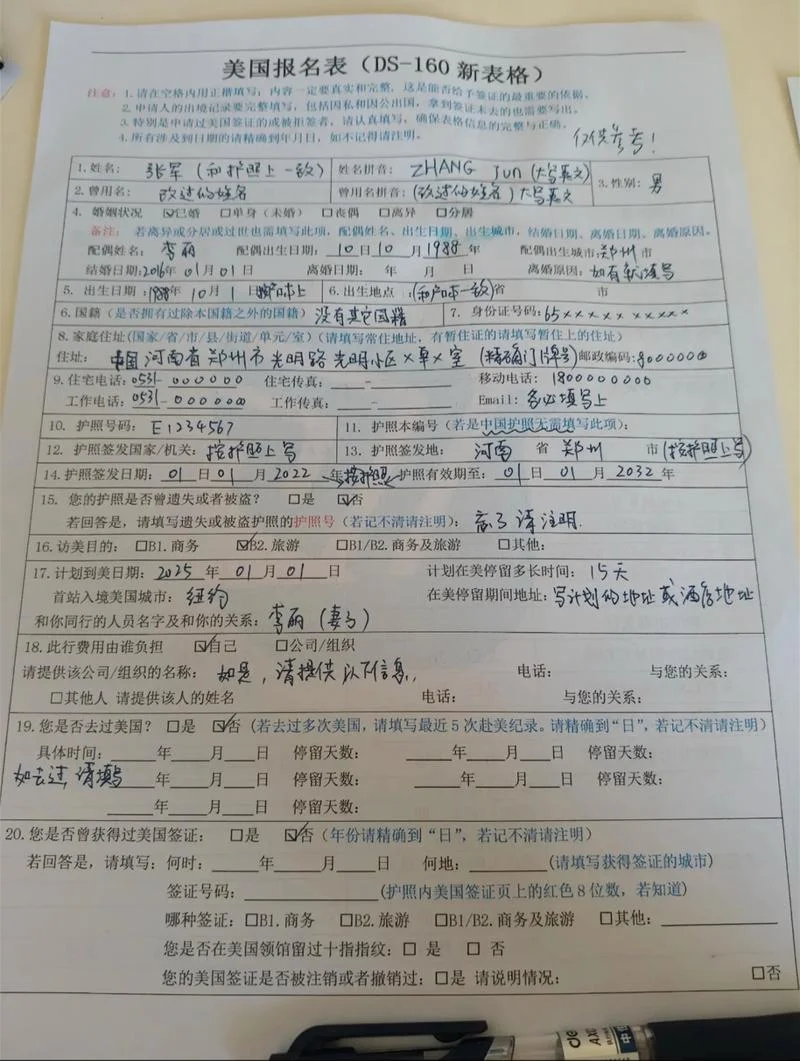 美国报名表（DS-160 新表格）
注意：1.请在空格内用正楷填写；内容一定要真实和完整，这是能否给予签证的最重要的依据。
2.申请人的出境记录要完整填写，包括因私和因公出国，拿到签证未去的也需要写出。
3.特别是申请过美国签证的或被拒签者，请认真填写，确保表格信息的完整与正确。
4.所有涉及到日期的请精确到年月日，如不记得请注明。
仅供参考！
1.姓名：张军（和护照上一致） 姓名拼音：ZHANG Jun（大写英文） 3.性别：男
2.曾用名：改过的姓名 曾用名拼音：（改过的姓名）大写英文
4. 婚姻状况 ☑已婚 □单身（未婚） □丧偶 □离异 □分居
备注： 若离异或分居或过世也需填写此项，配偶姓名、出生日期、出生城市，结婚日期、离婚日期、离婚原因。
配偶姓名：李丽 配偶出生日期：10日10月1988年 配偶出生城市：郑州市
结婚日期：2016年01月01日 离婚日期： 年 月 日 离婚原因：如有就填写
5. 出生日期：1988年10月1日 6.出生地点：（和户口本一致）省 市
6.国籍（是否拥有过除本国籍之外的国籍）没有其它国籍 7. 身份证号码：65××××××××××
8.家庭住址（国家/省/市/县/街道/单元/室）（请填写常住地址，有暂住证的请填写暂住上的地址）
住址：中国河南省郑州市光明路光明小区×单×室（精确门牌号）邮政编码：8000000
9.住宅电话：0531-0000000 住宅传真：—— 移动电话：1800000000
工作电话：0531-0000000 工作传真：—— Email：务必填写上
10. 护照号码：E1234567 11. 护照本编号（若是中国护照无需填写此项）：
12. 护照签发国家/机关：按护照上写 13. 护照签发地：河南 省 郑州 市（按护照上写）
14.护照签发日期：01日01月2022年 按护照 护照有效期至：01日01月2032年
15. 您的护照是否曾遗失或者被盗？ □是 ☑否
若回答是，请填写遗失或被盗护照的护照号（若记不清请注明）：忘了请注明.
16.访美目的：□B1.商务 ☑B2.旅游 □B1/B2.商务及旅游 □其他：
17.计划到美日期：2025年01月01日 计划在美停留多长时间：15天
首站入境美国城市：纽约 在美停留期间地址：写计划的地址或酒店地址
和你同行的人员名字及和你的关系：李丽（妻子）
18.此行费用由谁负担 ☑自己 □公司/组织
请提供该公司/组织的名称：如是，请提供以下信息. 电话： 与您的关系：
□其他人 请提供该人的姓名 电话： 与您的关系：
19.您是否去过美国？ □是 ☑否（若去过多次美国，请填写最近5次赴美纪录。请精确到“日”，若记不清请注明）
具体时间：____年____月____日 停留天数： ____年____月____日 停留天数：
如去过，请填写____年____月____日 停留天数： ____年____月____日 停留天数：
____年____月____日 停留天数：
20.您是否曾获得过美国签证： □是 ☑否（年份请精确到“日”，若记不清请注明）
若回答是，请填写：何时：____年____月____日 何地：________（请填写获得签证的城市）
签证号码：____________（护照内美国签证页上的红色8位数，若知道）
哪种签证：□B1.商务 □B2.旅游 □B1/B2.商务及旅游 □其他：__________
您是否在美国领馆留过十指指纹：□ 是 □ 否
您的美国签证是否被注销或者撤销过：□是 请说明情况： □否
deli